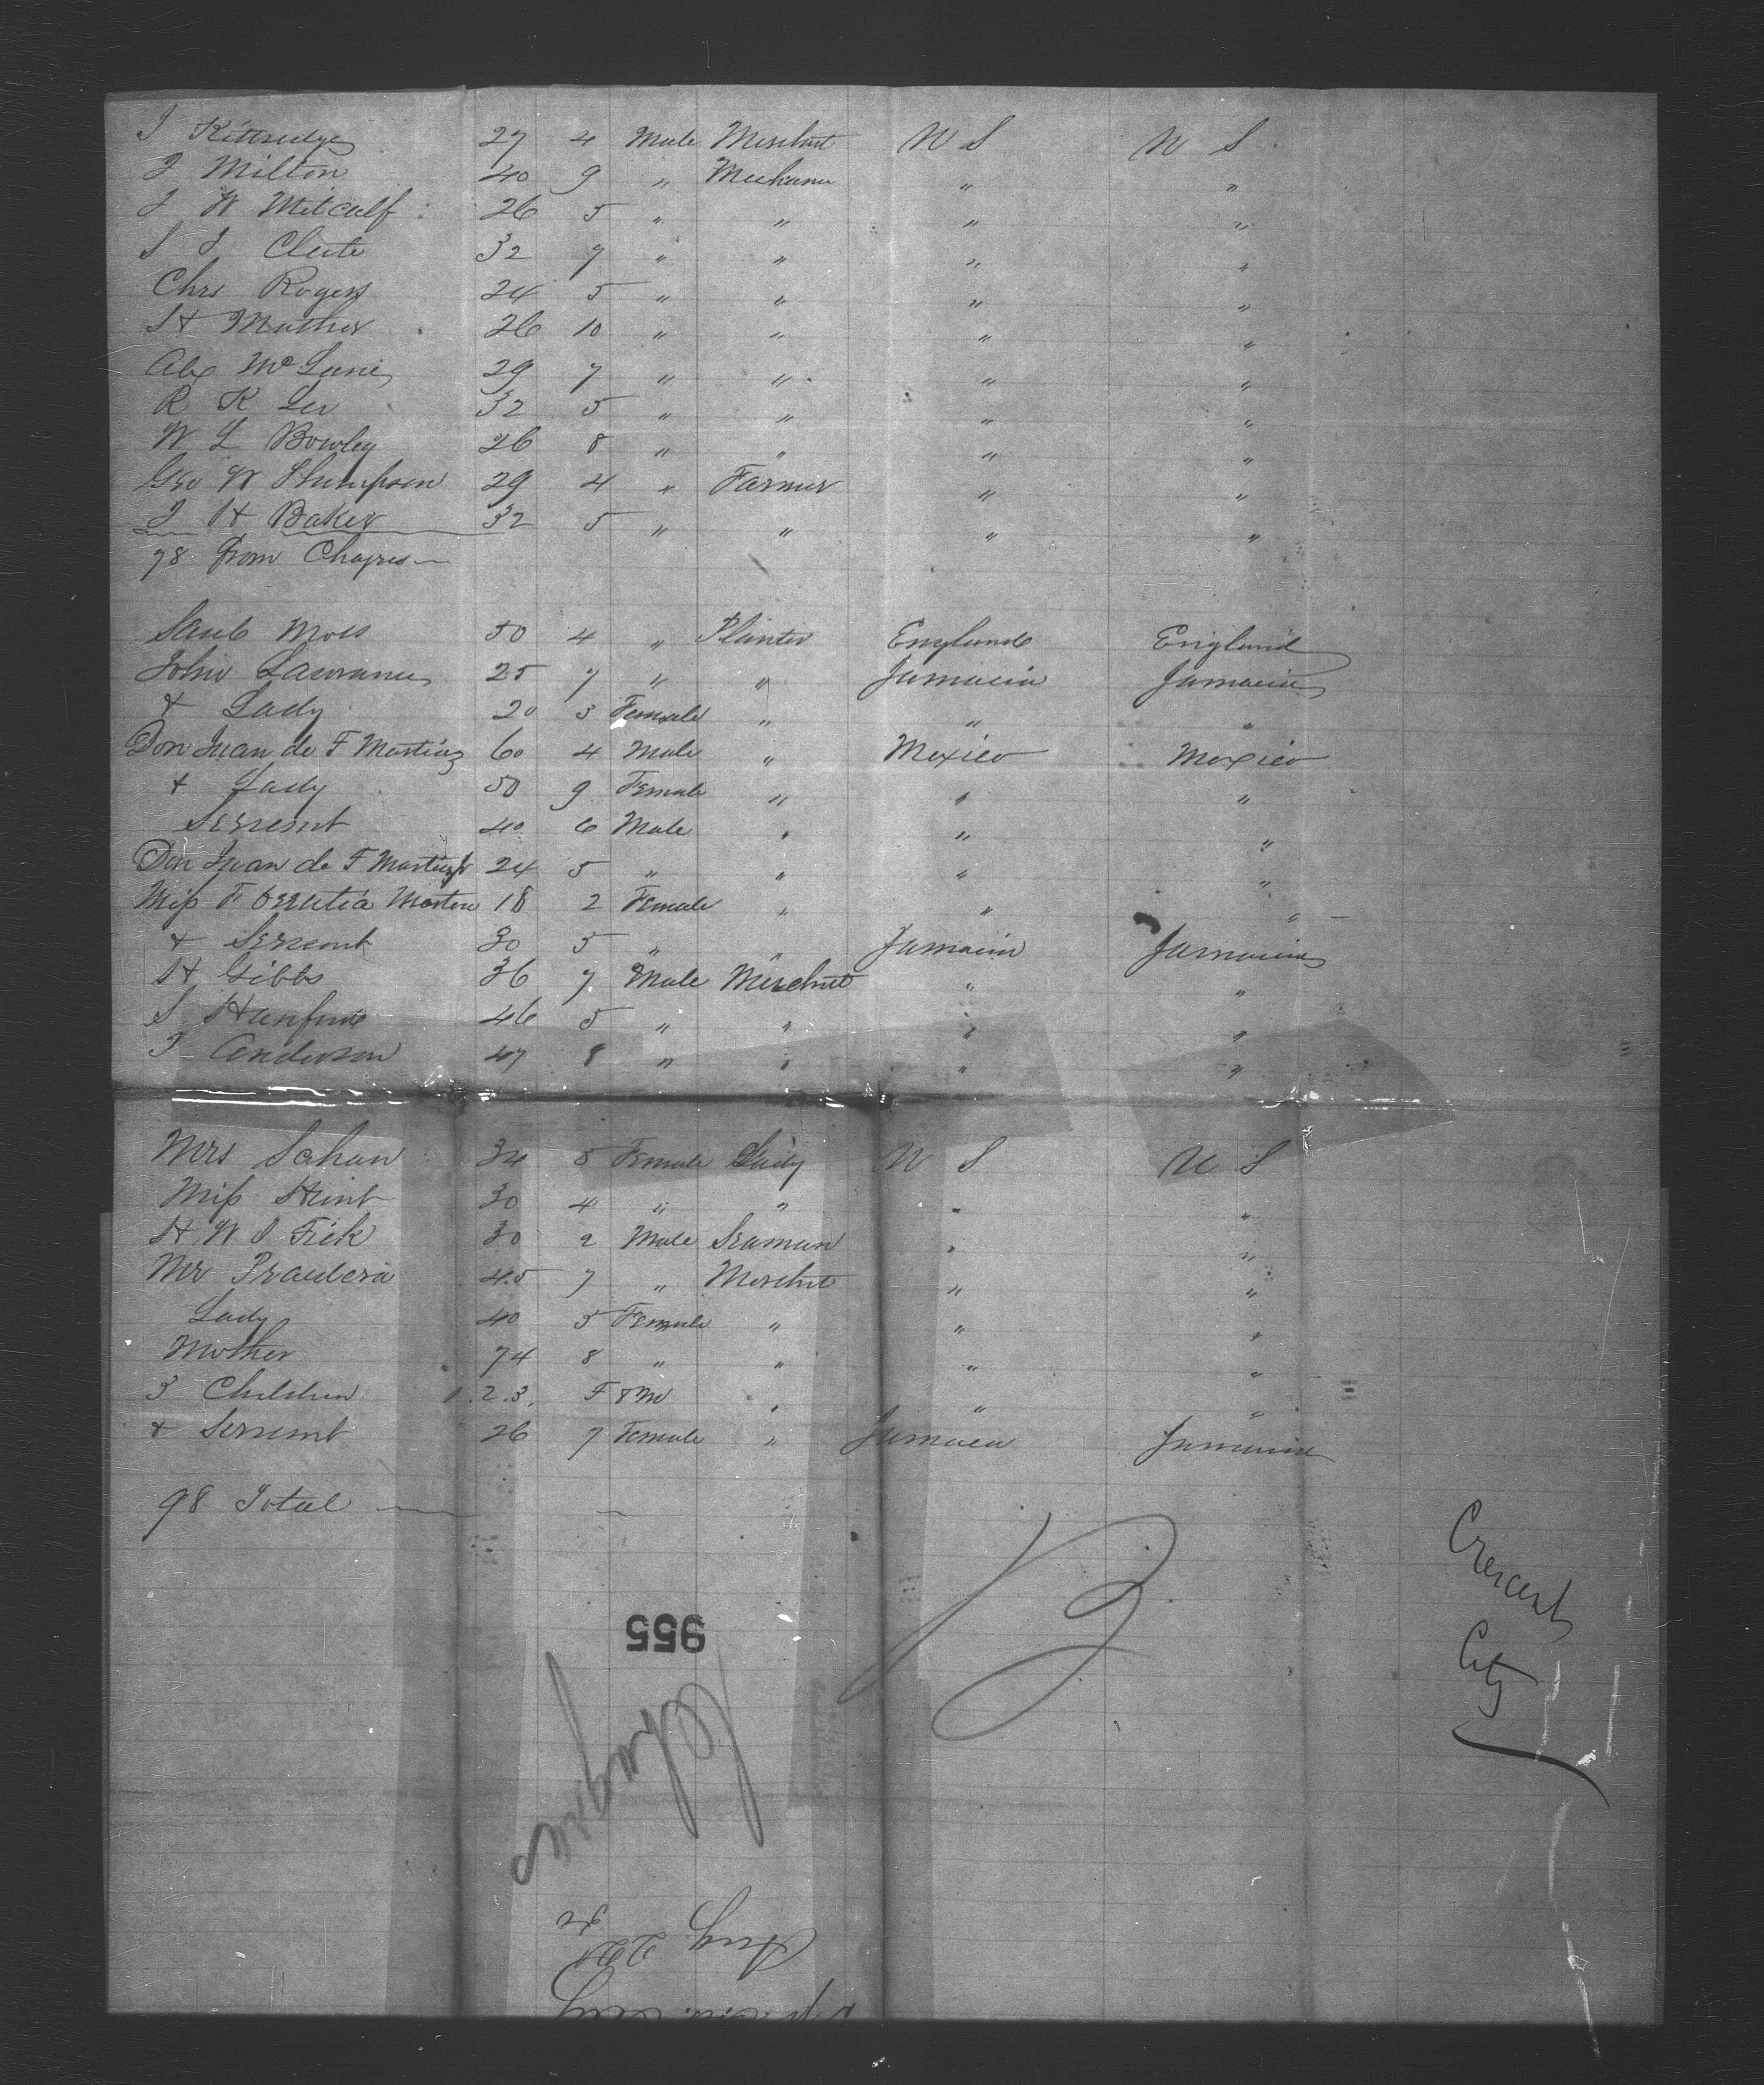 J Kittredge 27 4 Male Merchnt U S U S
J Milton 40 9 " Mechanic " "
J W Metcalf 26 5 " " " "
S J Clute 32 7 " " " "
Chrs Rogers 24 5 " " " "
H Mather 26 10 " " " "
Alex Mc Lane 29 7 " " " "
R K Lee 32 5 " " " "
W L Bowley 26 8 " " " "
Geo W Thumpson 29 4 " Farmer " "
J H Baker 32 5 " " " "
78 from Chagres
Saml Moss 50 4 " Planter England England
John Lawrance 25 7 " " Jamacia Jamacia
& Lady 20 3 Female " " "
Don Juan de F Martinz 60 4 Male " Mexico Mexico
& Lady 50 9 Female " " "
Servent 40 6 Male " " "
Don Juan de F Martinz Jr 24 5 " " " "
Miss F Orrutia 18 2 Female " " "
& Servent 30 5 " " Jamacia Jamacia
H Gibbs 36 7 Male Merchnt " "
S Hanford 46 5 " " " "
J Anderson 47 8 " " " "
Mrs Schan 34 5 Female Lady U S U S
Miss Hunt 30 4 " " " "
H W J Fick 30 2 Male Seaman " "
Mr 45 7 " Merchnt " "
Lady 40 5 Female " " "
Mother 74 8 " " " "
3 Children 1.2.3. F & M " " "
& Servent 26 7 Female " Jamaca Jamacia
98 Total
Crescent
City
955
Chagres
Aug 22